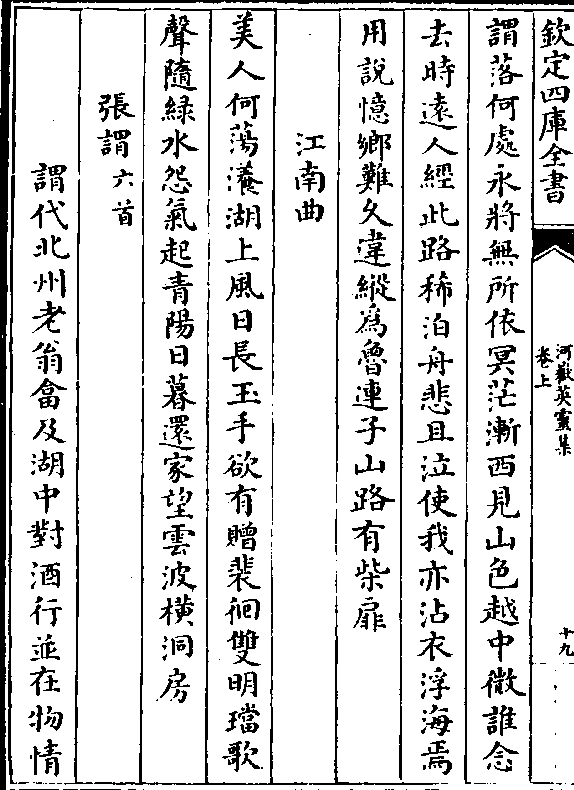 欽定四庫全書
河嶽英靈集
卷上
十九
謂落何處永將無所依冥茫漸西見山色越中微誰念
去時遠人經此路稀泊舟悲且泣使我亦沾衣浮海焉
用說憶鄉難久違縱爲魯連子山路有柴扉
江南曲
美人何蕩瀁湖上風日長玉手欲有贈裴徊雙明璫歌
聲隨綠水怨氣起青陽日暮還家望雲波橫洞房
張謂六首
謂代北州老翁畣及湖中對酒行並在物情